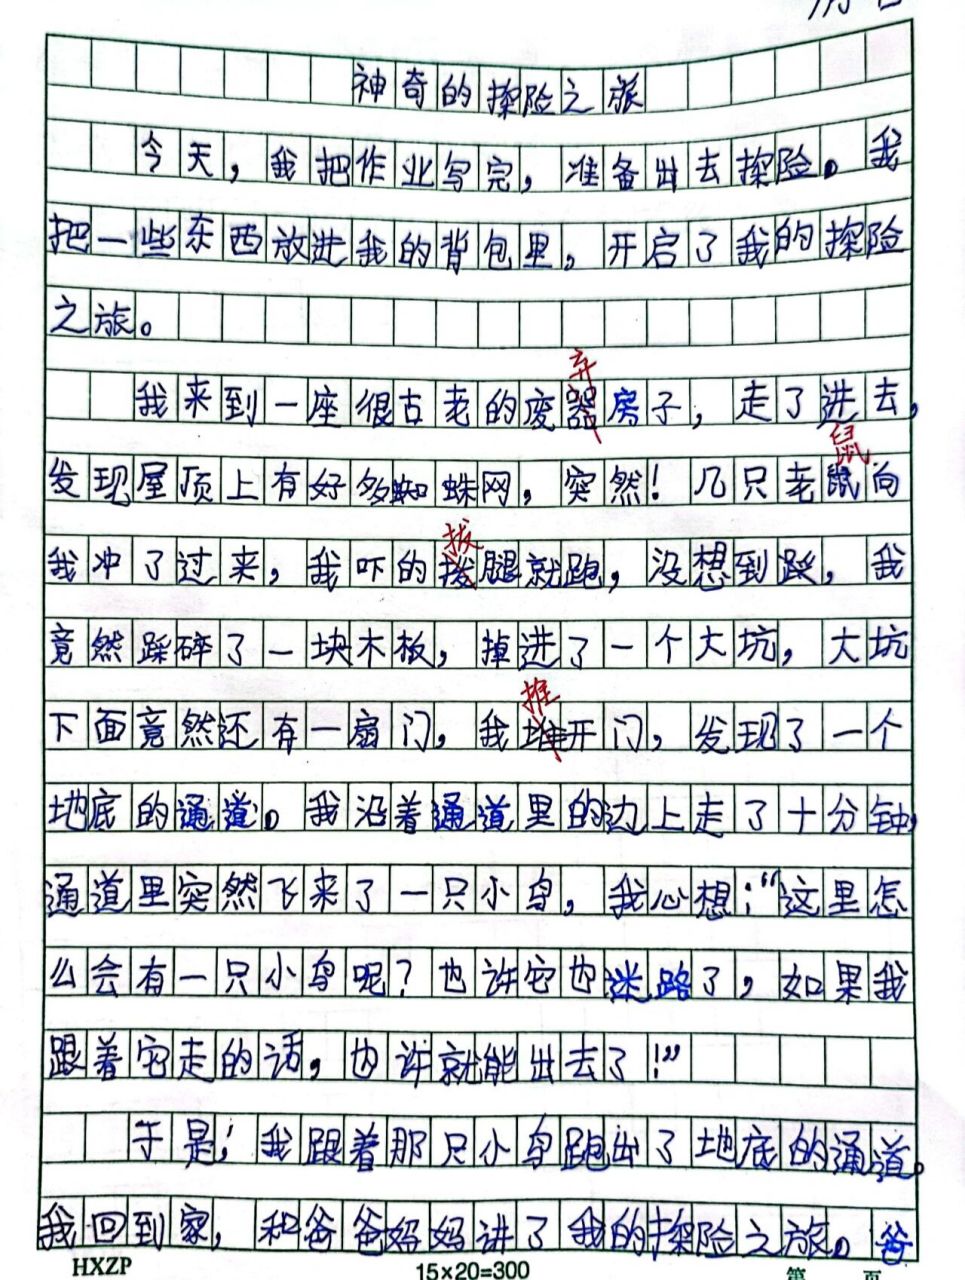 神奇的探险之旅
今天，我把作业写完，准备出去探险。我
把一些东西放进我的背包里，开启了我的探险
之旅。
弃
我来到一座很古老的废器房子，走了进去，
鼠
发现屋顶上有好多蜘蛛网，突然！几只老鼠向
拔
我冲了过来，我吓的拨腿就跑，没想到跺，我
推
竟然踩碎了一块木板，掉进了一个大坑，大坑
下面竟然还有一扇门，我堆开门，发现了一个
地底的通道。我沿着通道里的边上走了十分钟，
通道里突然飞来了一只小鸟，我心想：“这里怎
么会有一只小鸟呢？也许它也迷路了，如果我
跟着它走的话，也许就能出去了！”
于是；我跟着那只小鸟跑出了地底的通道。
我回到家，和爸爸妈妈讲了我的探险之旅。爸
HXZP 15×20=300 第 页